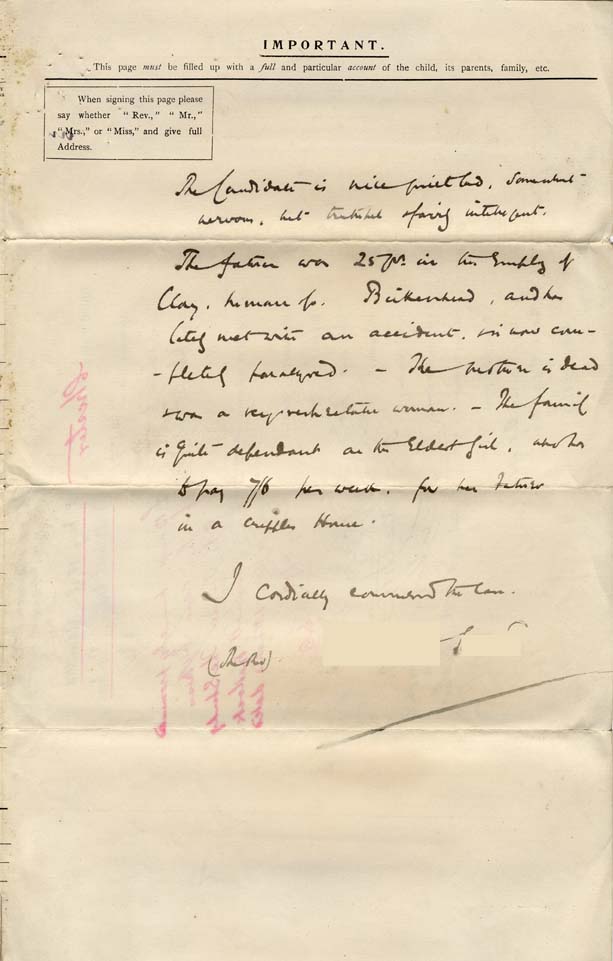 IMPORTANT.
This page must be filled up with a full and particular account of the child, its parents, family, etc.
When signing this page please
say whether "Rev.," "Mr.,"
"Mrs.," or "Miss," and give full
Address.
The Candidate is nice quiet lad, somewhat
nervous, but truthful & fairly intelligent.
The father was 25 yrs. in the Employ of
Clay, Inman & Co. Birkenhead, and has
lately met with an accident, & is now com-
-pletely paralysed. - The mother is dead
& was a very woman. - The family
is quite dependant on the Eldest Girl, who has
to pay 7/6 per week, for her Father
in a cripples Home.
I cordially commend the case.
(The Rev)